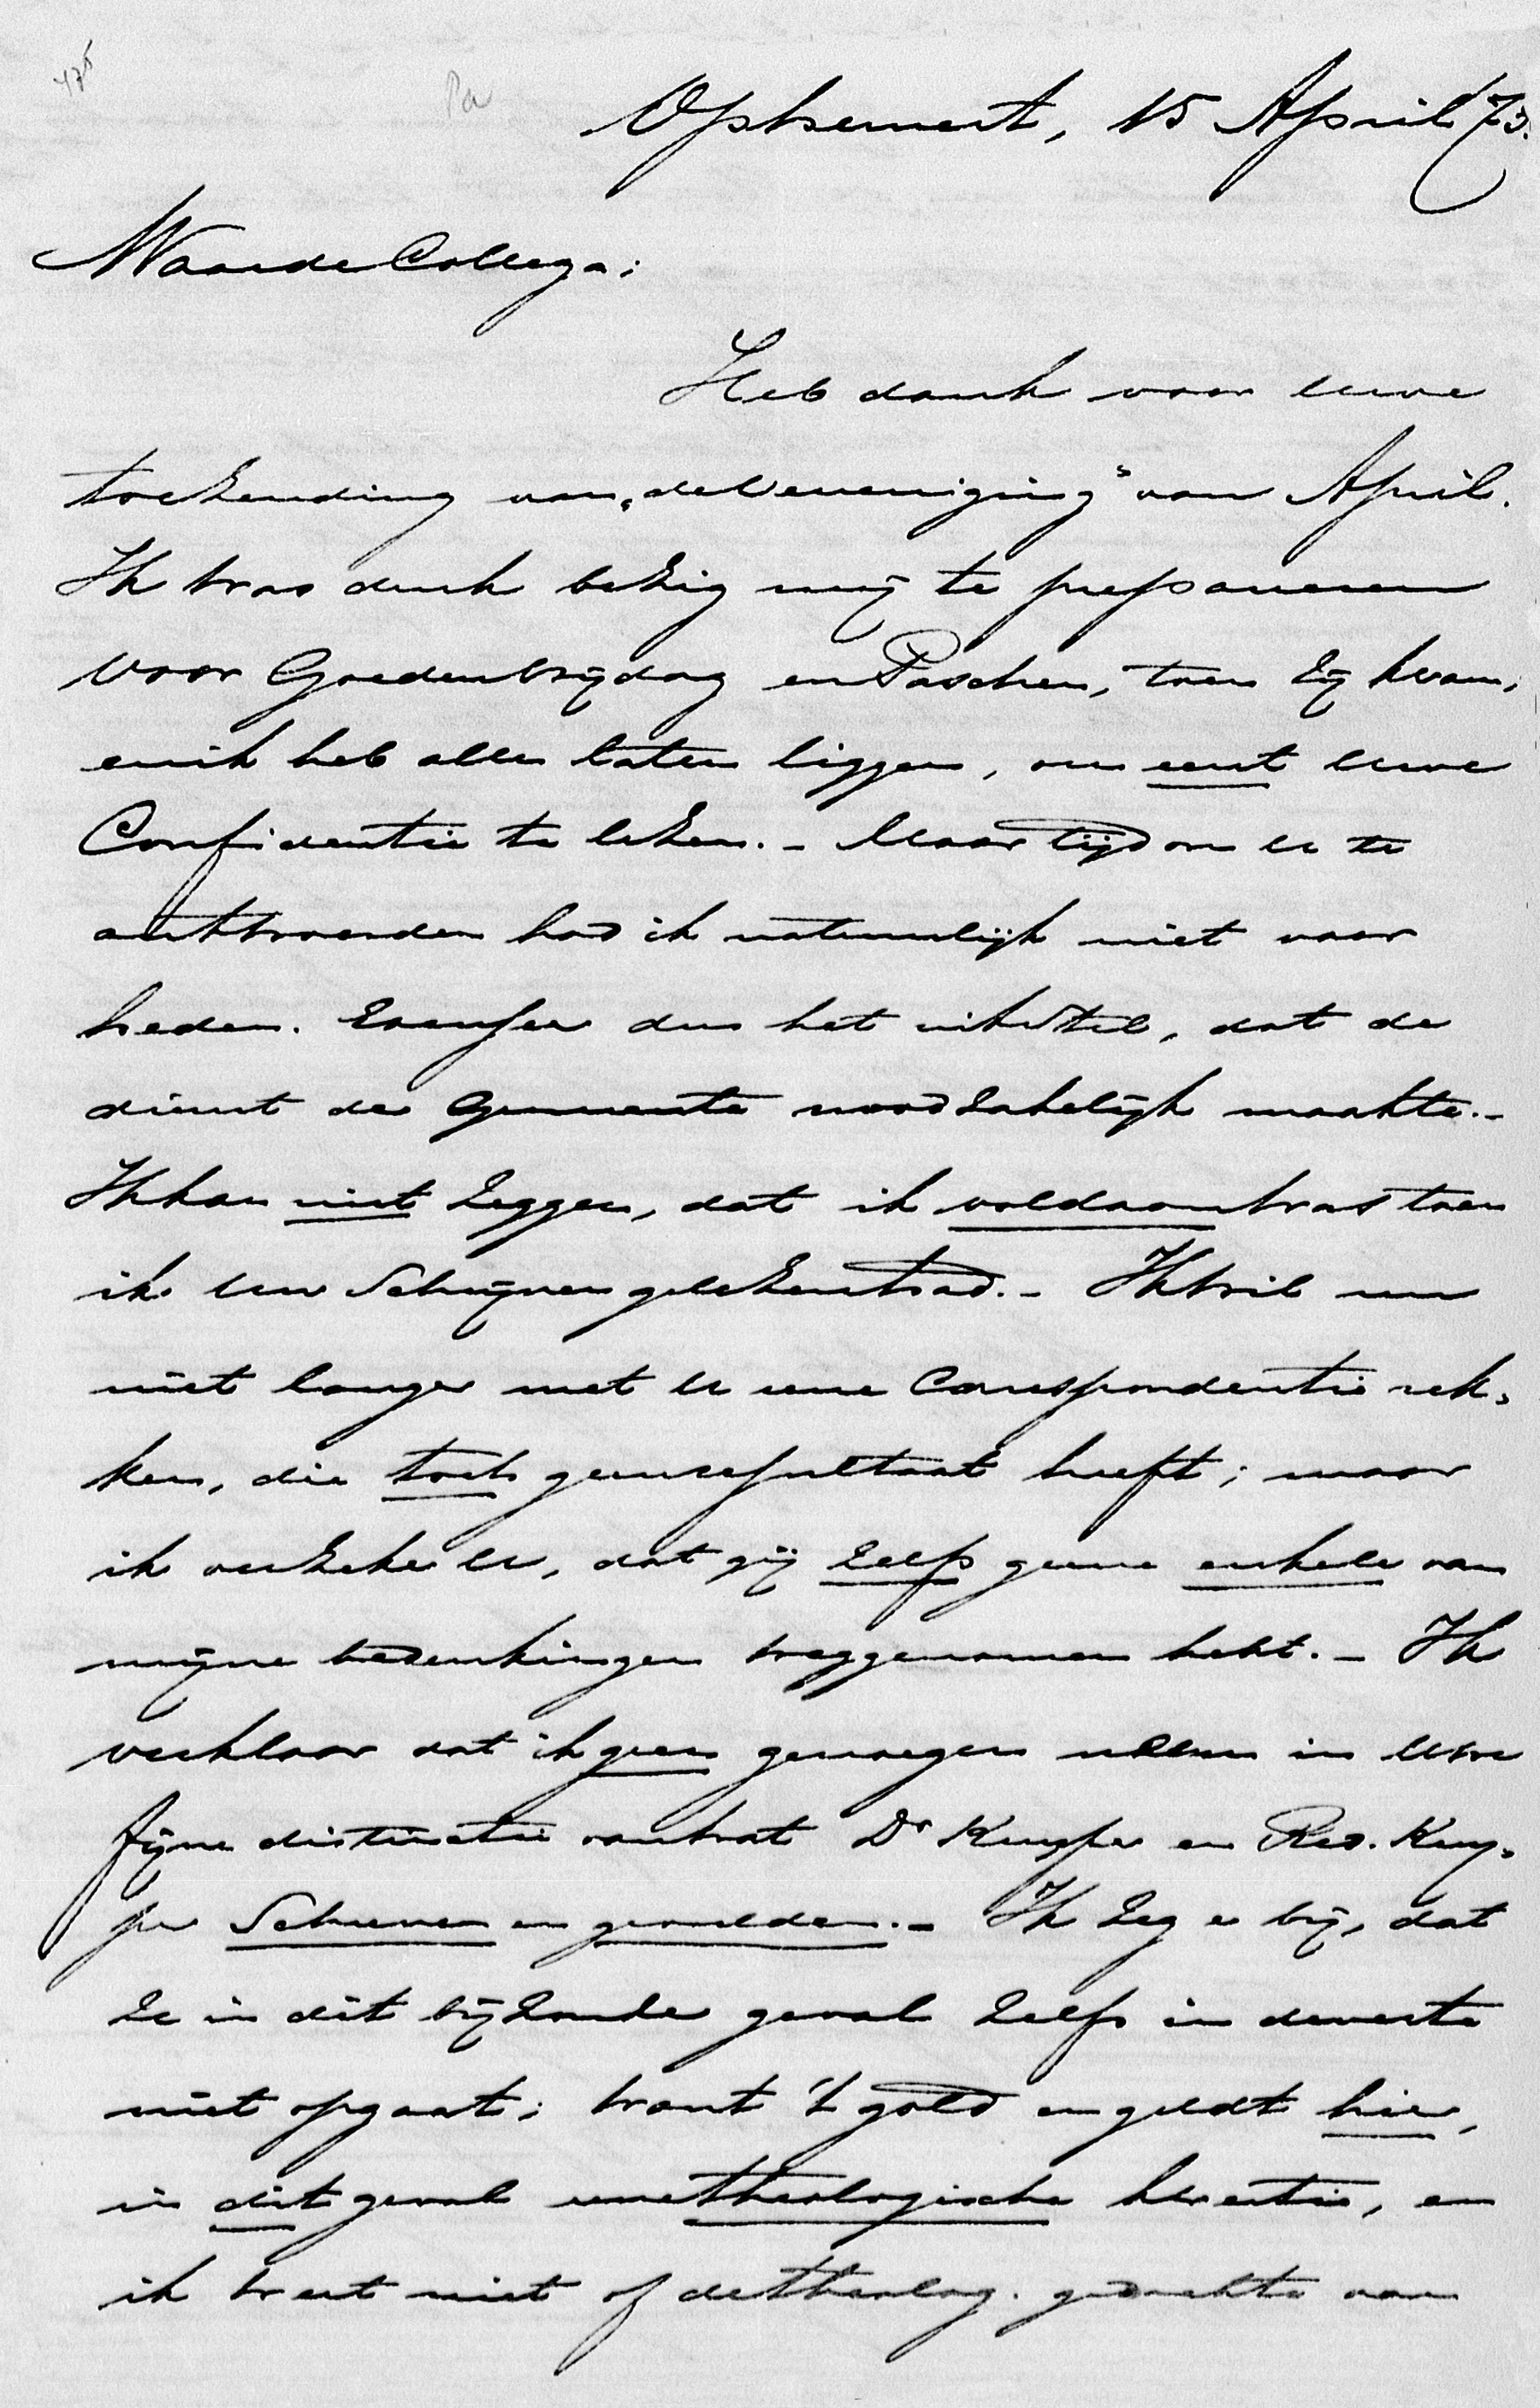 475
Pa
Ophemert, 15 April 73.
Waarde Collega;
Heb dank voor Uwe
toezending van „de Vereeniging” van April.
Ik was druk bezig mij te prepareeren
voor Goeden vrijdag en Paschen, toen zij kwam,
en ik heb alles laten liggen, om eerst Uwe
Confidentie te lezen. – Maar tijd om U te
antwoorden had ik natuurlijk niet voor
heden. Excuseer dus het uitstel, dat de
dienst der Gemeente noodzakelijk maakte. –
Ik kan niet zeggen, dat ik voldaan was toen
ik Uw Schrijven gelezen had. – Ik wil nu
niet langer met U eene Correspondentie rek-
ken, die toch geen resultaat heeft; maar
ik verzeker U, dat gij zelfs geene enkele van
mijne bedenkingen weggenomen hebt. – Ik
verklaar dat ik geen genoegen neem in Uwe
fijne distinctie van wat Dr Kuyper en Red. Kuy-
per Schreven en grondden. – Ik zeg er bij, dat
ze in dit bijzonder geval zelfs in de verste
niet opgaat; want 't gold en geldt hier,
in dit geval eene theologische kwestie, en
ik weet niet of de theolog. gedachte van